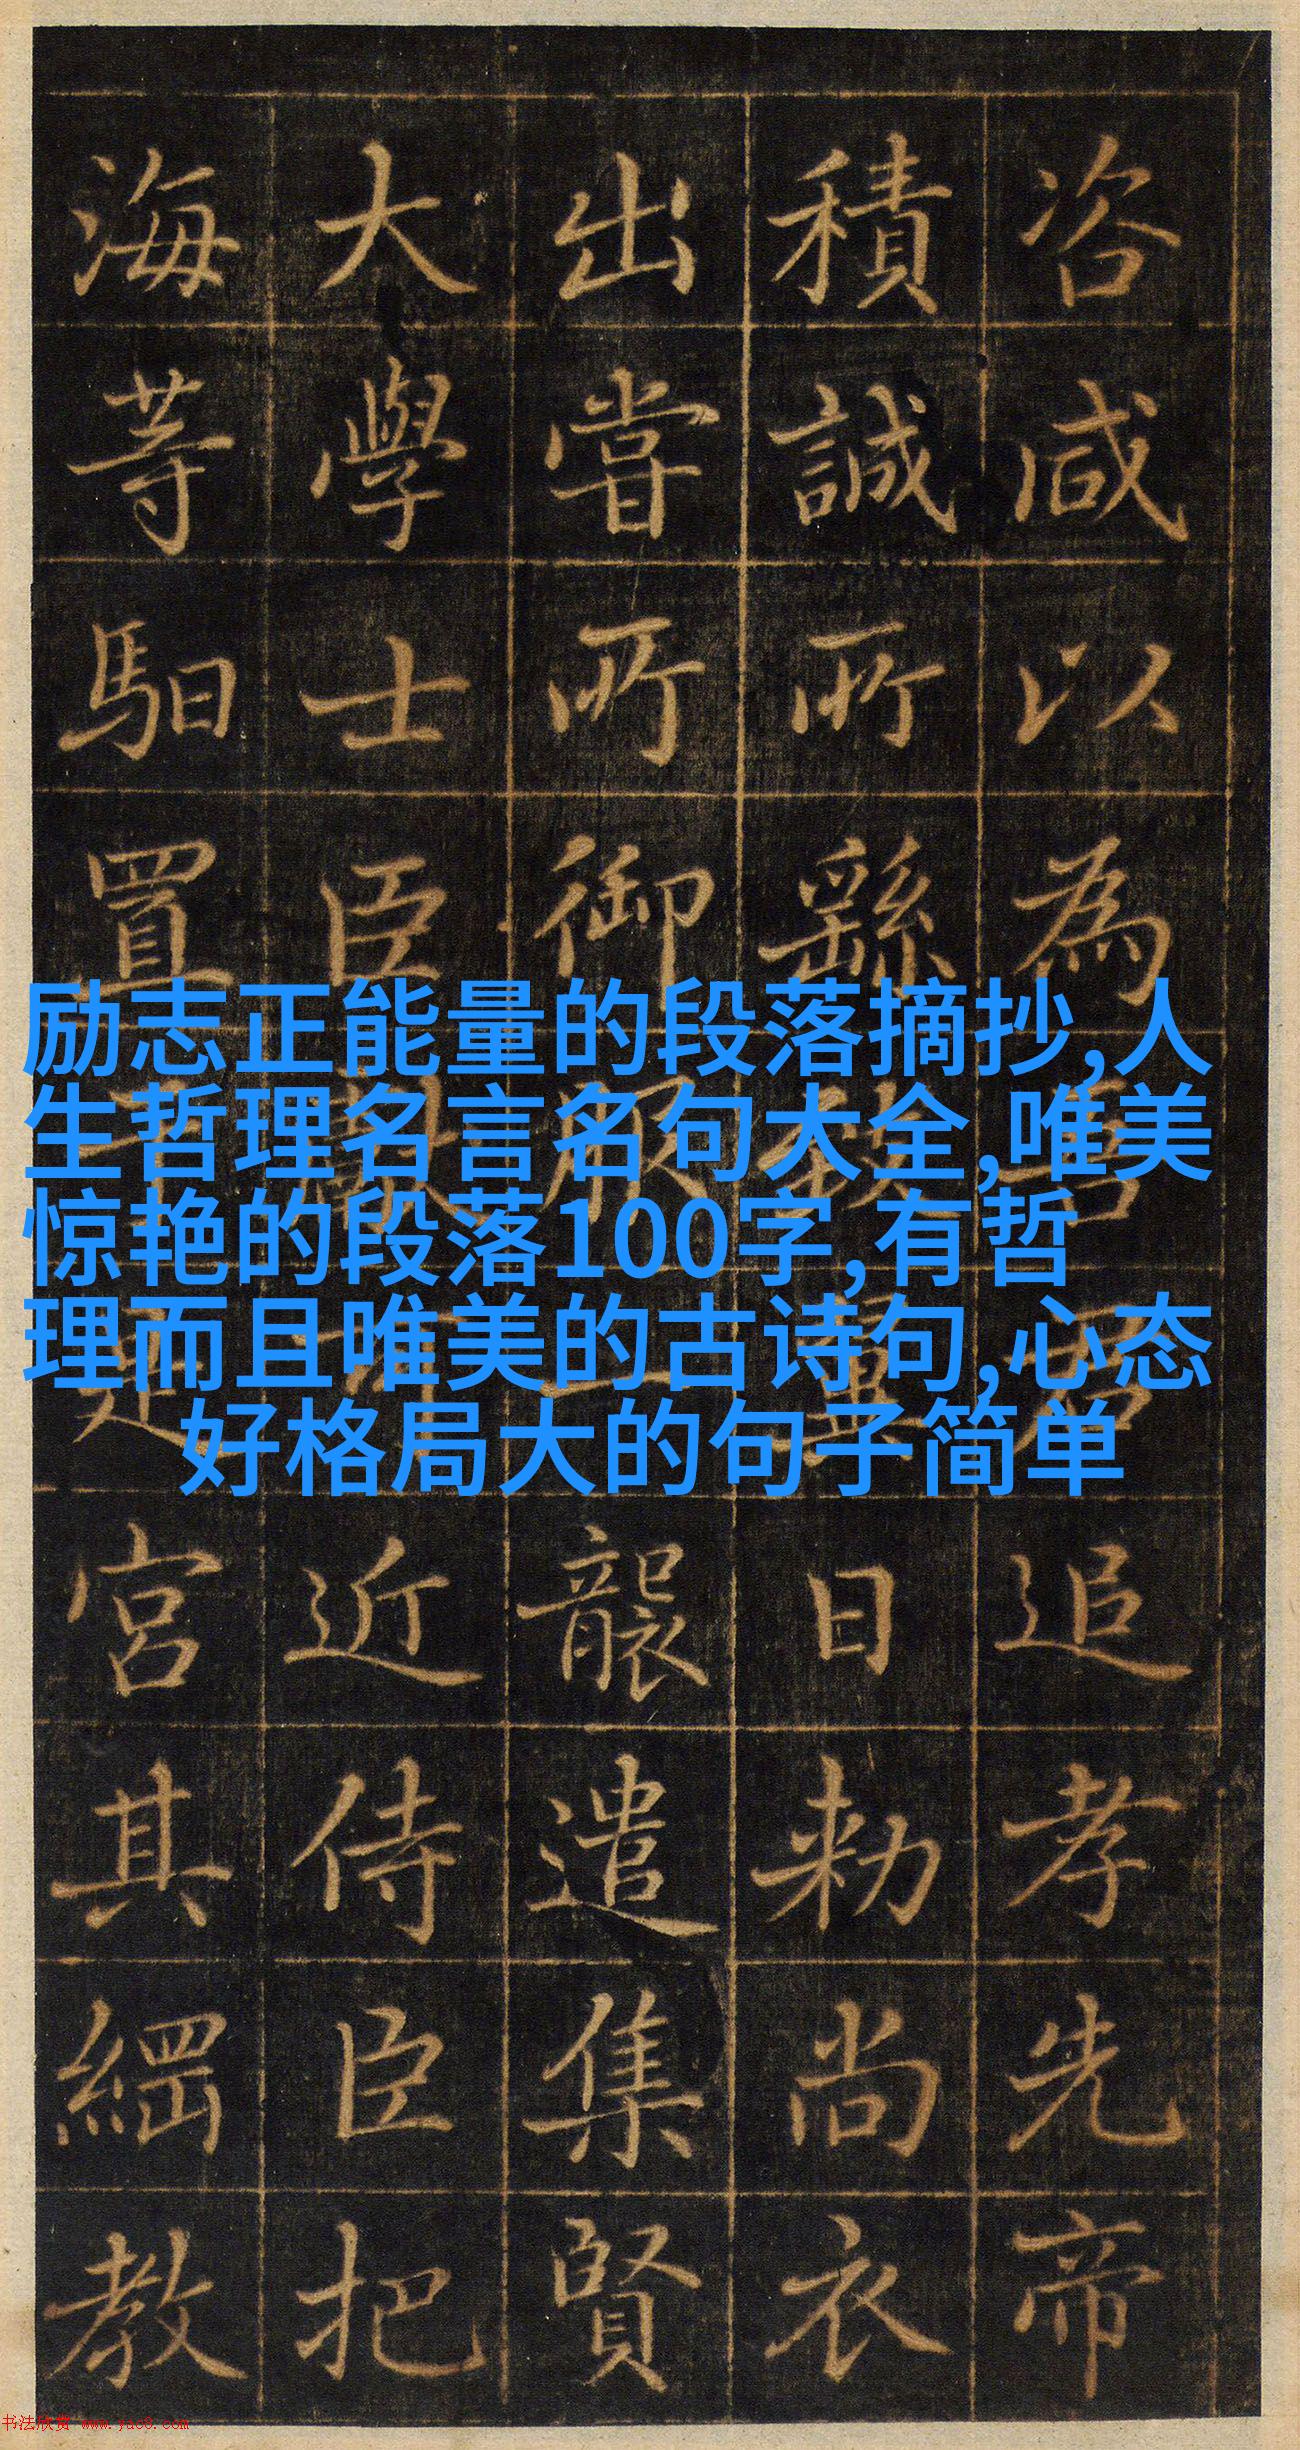 咨咸以為吾君追孝先帝
積誠所繇致日敕尚衣
出嘗所御服一襲遣集賢
大學士臣近侍臣把
海等馹置宮其綱教
励志正能量的段落摘抄,人
生哲理名言名句大全,唯美
惊艳的段落100字,有哲
理而且唯美的古诗句,心态
好格局大的句子简单
书法欣赏 www.yac8.com